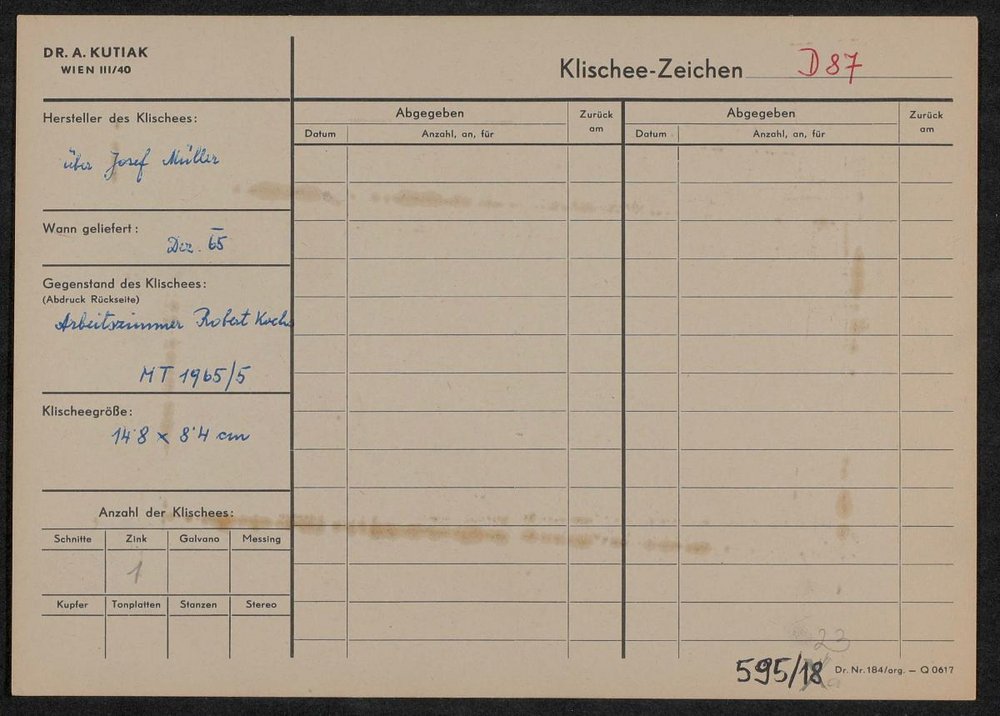 DR. A. KUTIAK
WIEN III/40
Klischee-Zeichen D 87
Hersteller des Klischees:
über Josef Müller
Wann geliefert:
Dez. 65
Gegenstand des Klischees:
(Abdruck Rückseite)
Arbeitszimmer Robert Kochs
MT 1965/5
Klischeegröße:
14·8 x 8·4 cm
Anzahl der Klischees:
Schnitte Zink Galvano Messing
1
Kupfer Tonplatten Stanzen Stereo
Abgegeben Zurück am
Datum Anzahl, an, für
Abgegeben Zurück am
Datum Anzahl, an, für
23
595/18
Dr. Nr. 184/org. — Q 0617